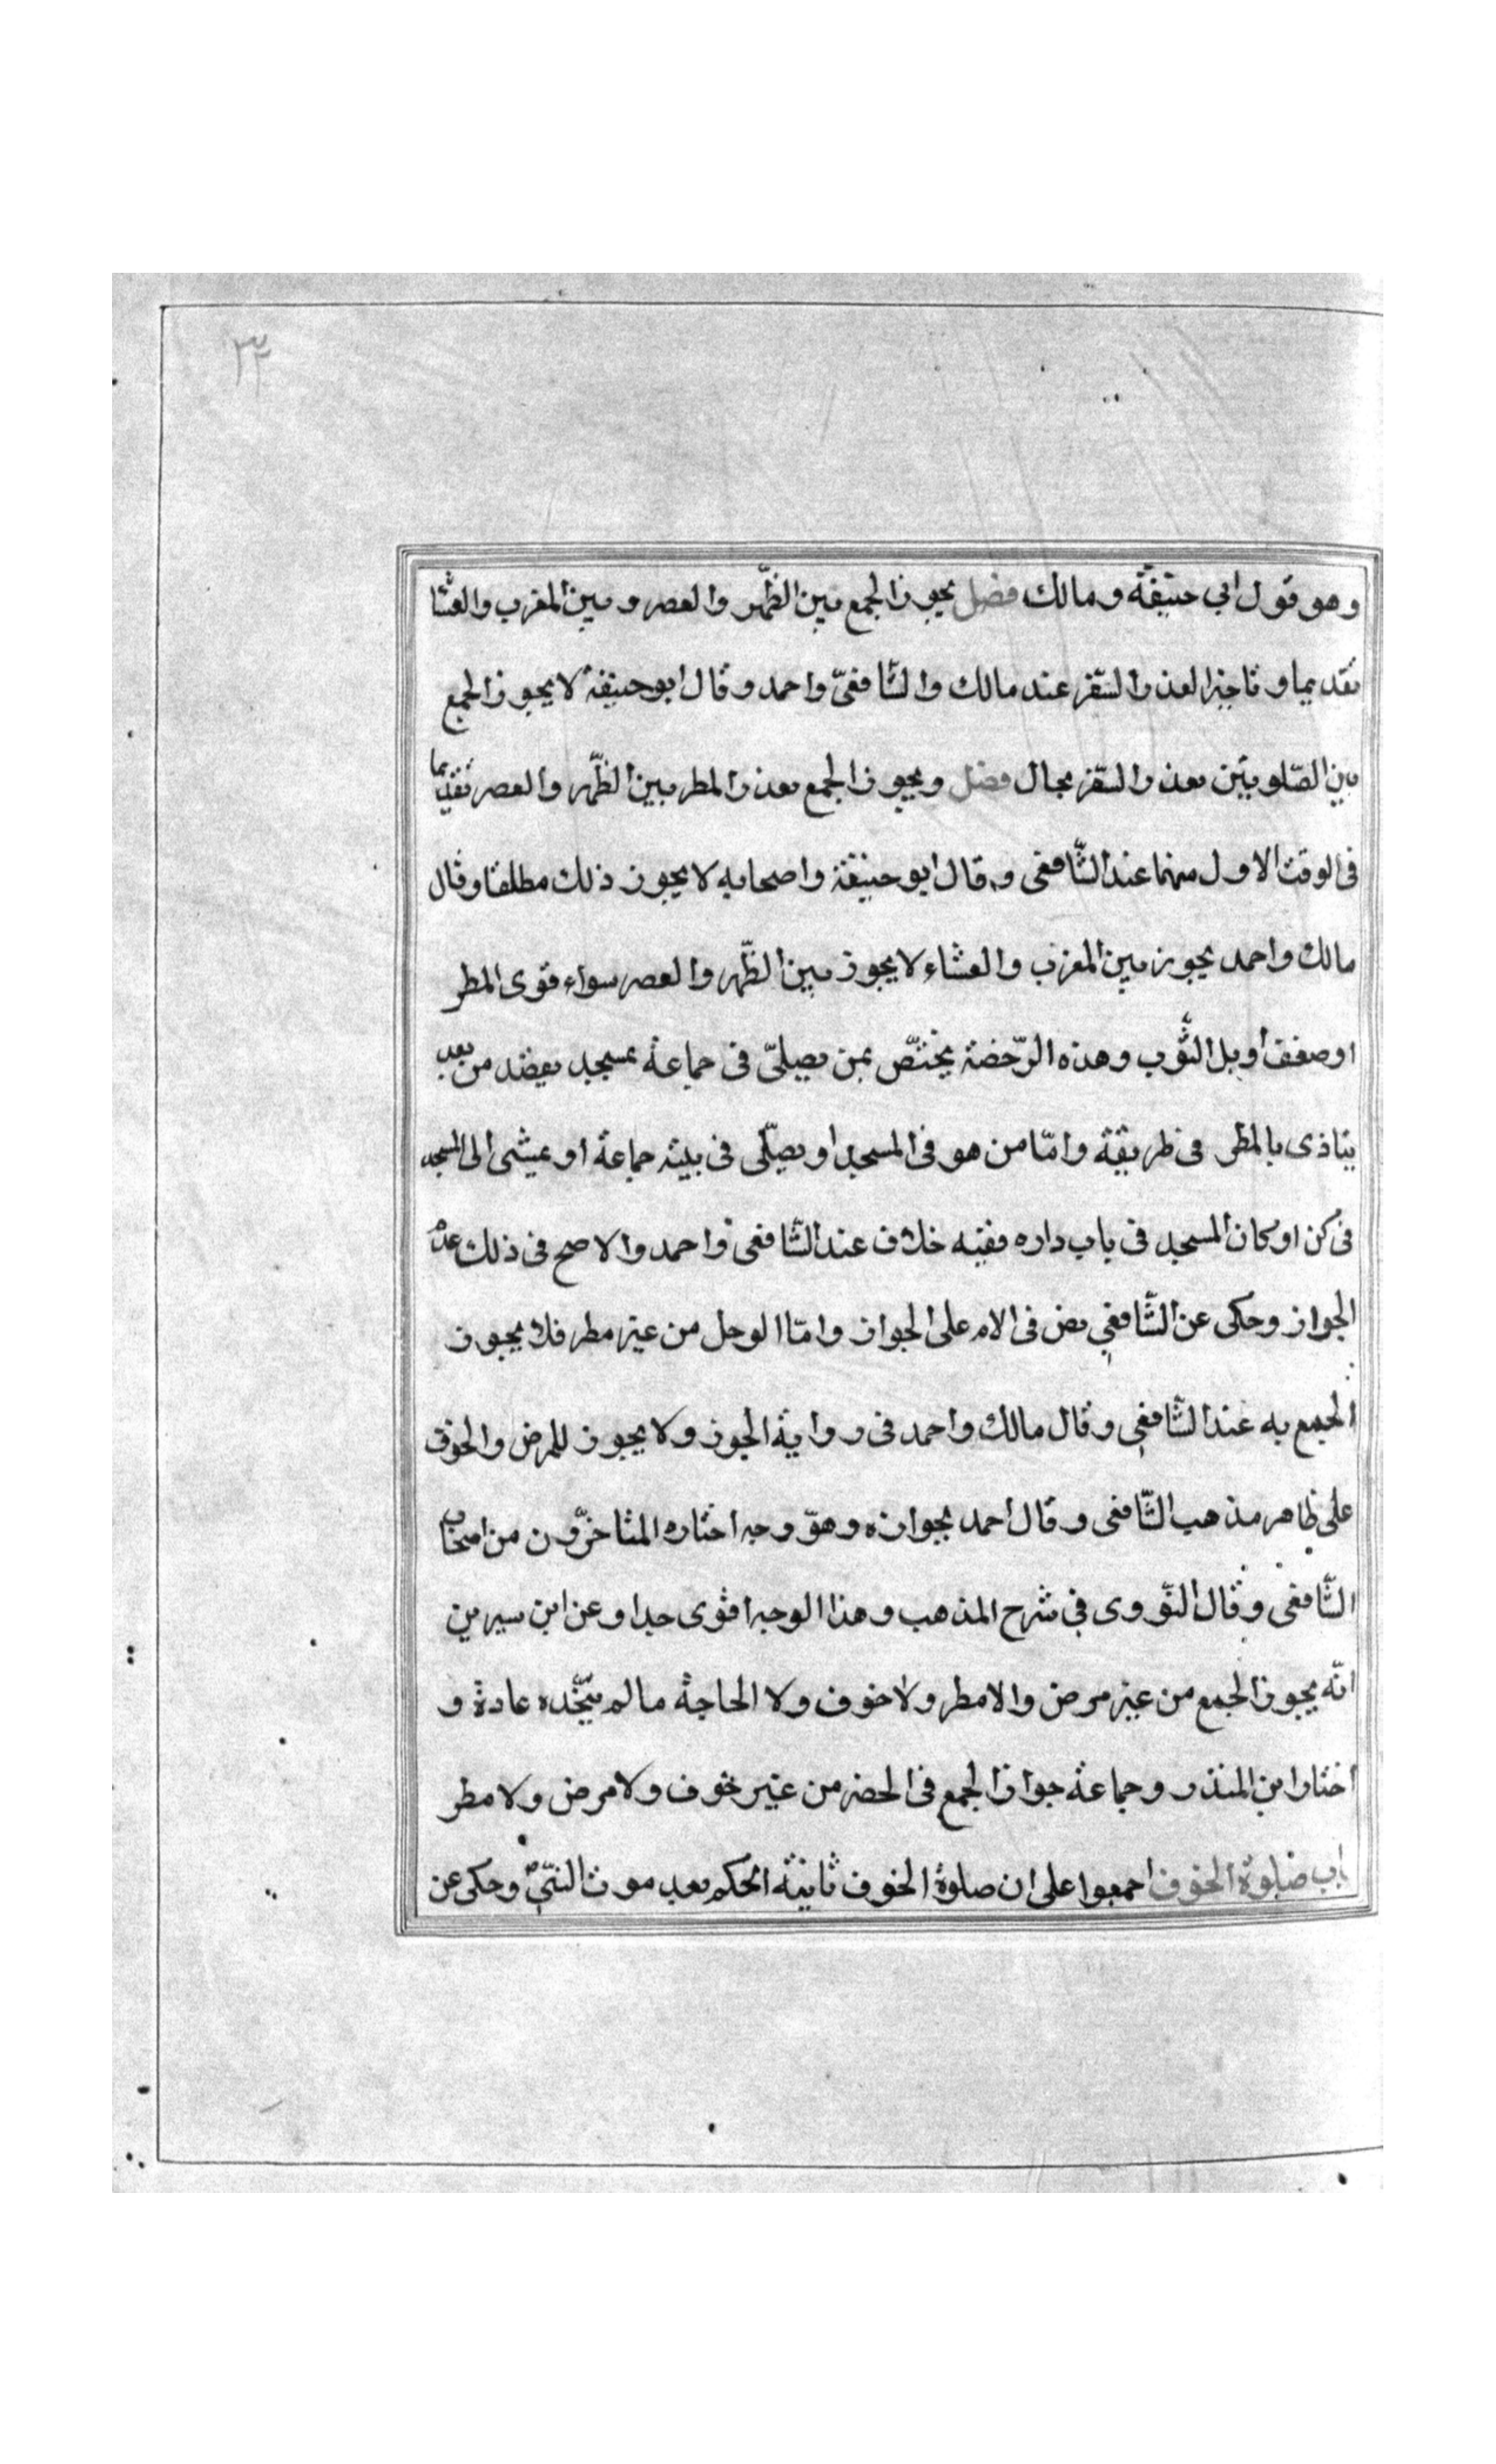 ٣٢
وهو قول ابي حنيفة ومالك فصل يجوز الجمع بين الظّهر والعصر وبين المغرب والعشا
تقديما وتاخيرا لعذر السّفر عند مالك والشّافعيّ واحمد وقال ابو حنيفة لا يجوز الجمع
بين الصّلوتين بعذر السّفر بحال فصل ويجوز الجمع بعذر المطر بين الظّهر والعصر تقديما
فى الوقت الاول منهما عند الشّافعى وقال ابو حنيفة واصحابه لا يجوز ذلك مطلقا وقال
مالك واحمد يجوز بين المغرب والعشاء لا يجوز بين الظّهر والعصر سواء قوى المطر
او ضعف اوبل الثّوب وهذه الرّخصة يختصّ بمن يصلّى فى جماعة بمسجد يقصد من بعد
يتاذى بالمطر فى طريقة وامّا من هو فى المسجد او يصلّى فى بيته جماعة او يمشى الى المسجد
فى كن او كان المسجد فى باب داره ففيه خلاف عند الشّافعى واحمد والاصح فى ذلك عدم
الجواز وحكى عن الشّافعي نص فى الام على الجواز وامّا الوحل من غير مطر فلا يجوز
الجمع به عند الشّافعي وقال مالك واحمد فى رواية الجوز ولا يجوز للمرض والخوف
على ظاهر مذهب الشّافعى وقال احمد بجوازه وهو وجه اختاره المتاخّرون من اصحاب
الشّافعى وقال النّووى فى شرح المذهب وهذا الوجه اقوى جدا وعن ابن سيرين
انّه يجوز الجمع من غير مرض والامطر ولا خوف ولا الحاجة ما لم يتّخذه عادة و
اختار ابن المنذر وجماعة جواز الجمع فى الحضر من غير خوف ولا مرض ولا مطر
باب صلوة الخوف اجمعوا على ان صلوة الخوف ثابتة الحكم بعد موت النّبيّ وحكى عن